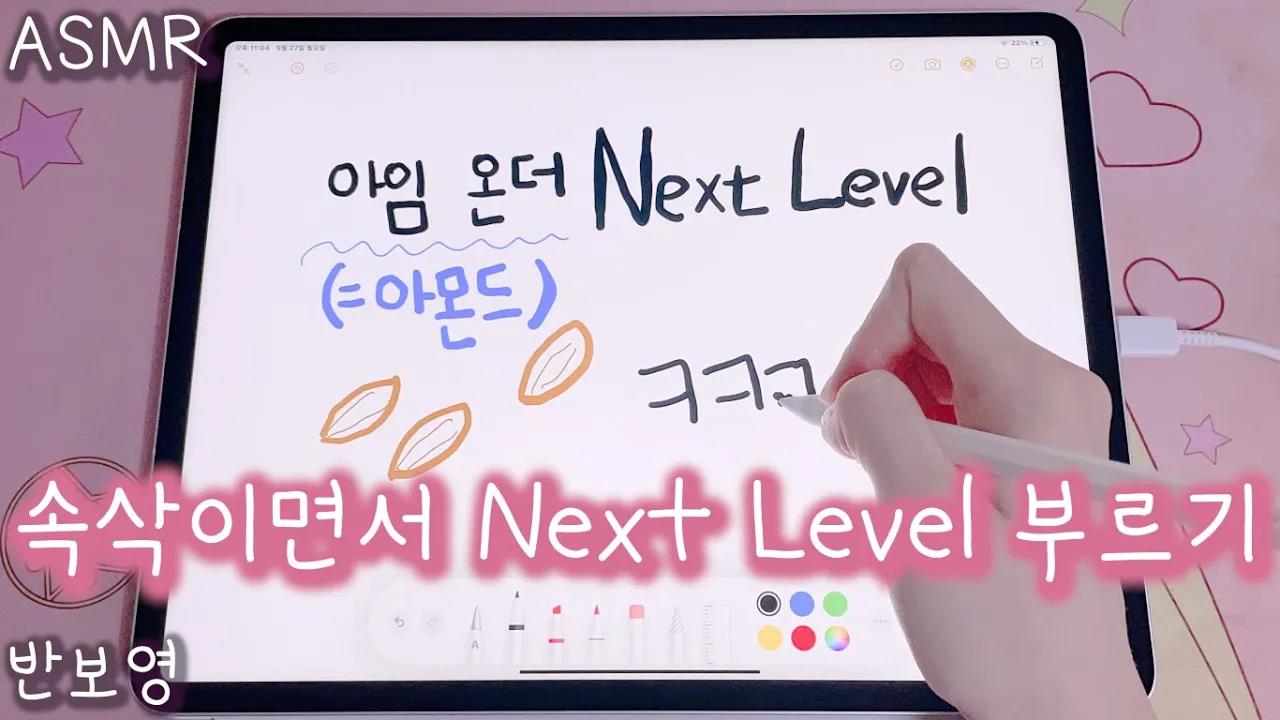 ASMR
오후 11:04 9월 27일 월요일
22%
아임 온더 Next Level
(=아몬드)
ㅋㅋㅋ
속삭이면서 Next Level 부르기
A
반보영